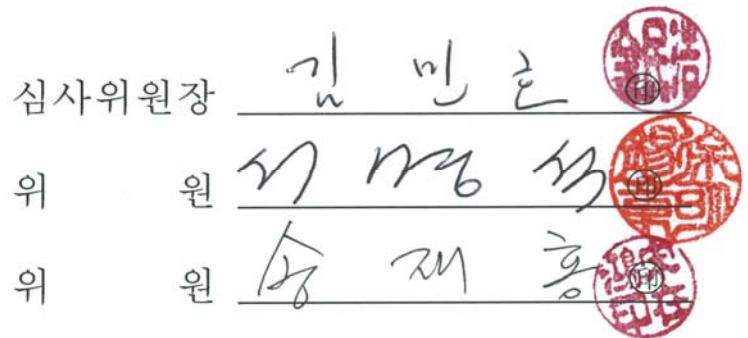 심사위원장 김 민 호 ㊞
위 원 서 명 석 ㊞
위 원 송 재 홍 ㊞